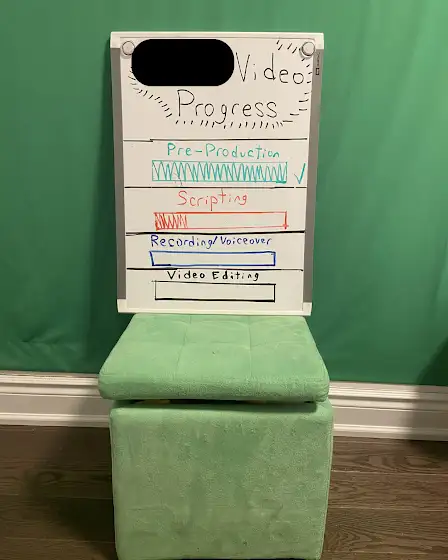 Video
Progress
Pre-Production
Scripting
Recording/Voiceover
Video Editing